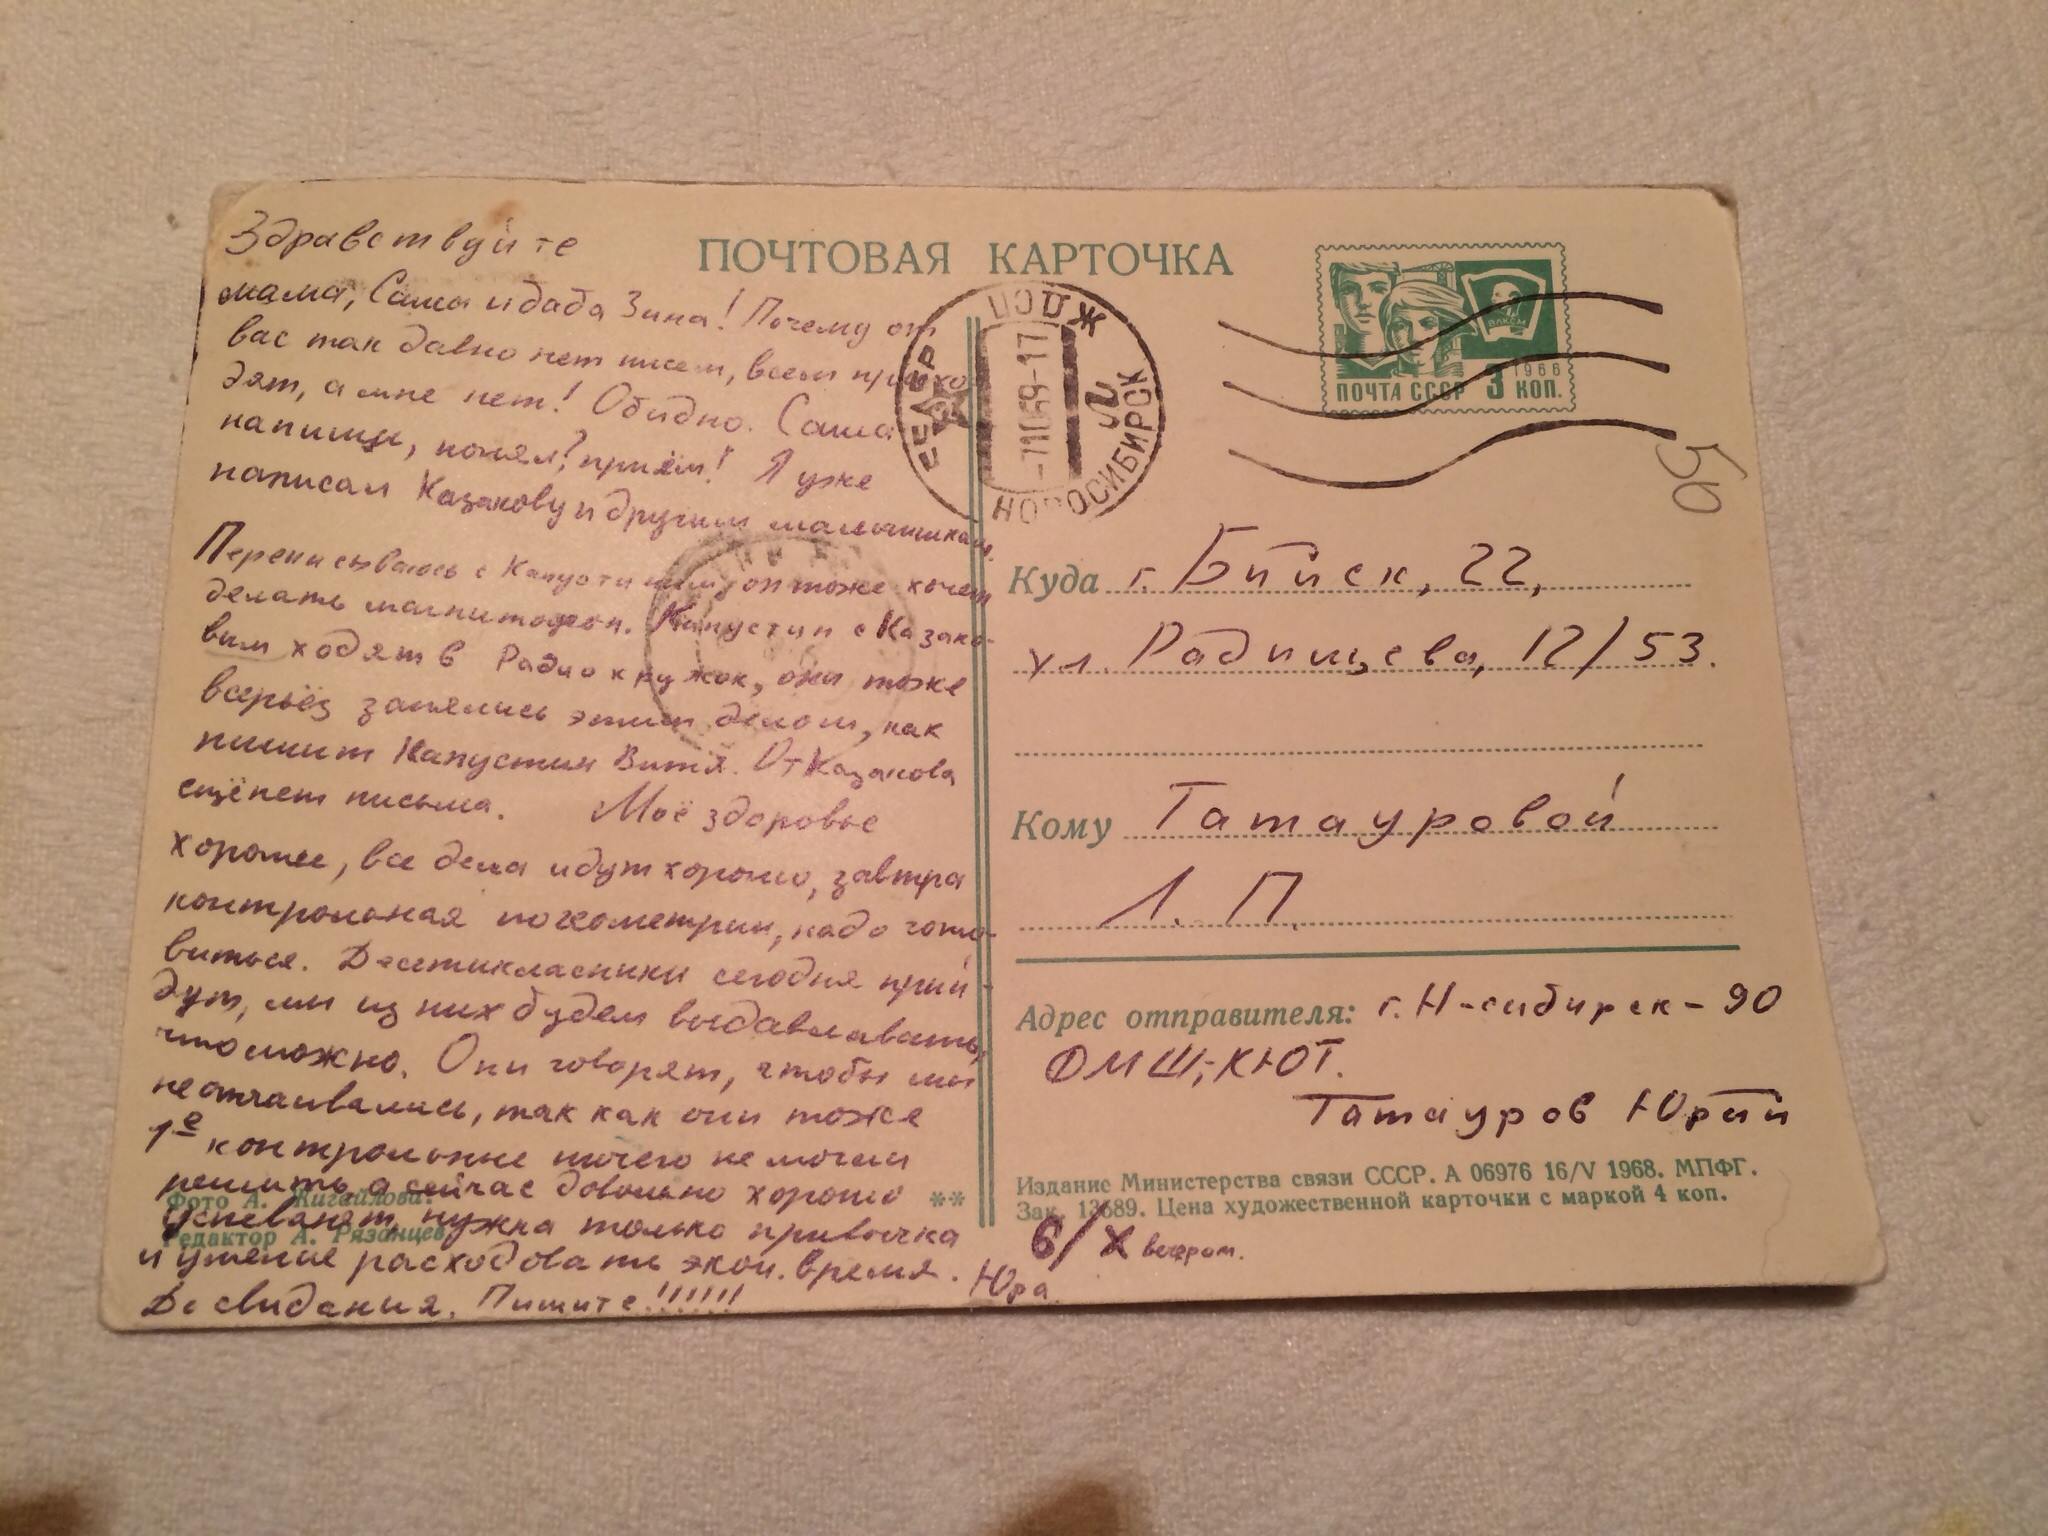 Здравствуйте
мама, Саша и баба Зина! Почему от
вас так давно нет писем, всем прихо
дят, а мне нет! Обидно. Саша
напиши, понял? приём! Я уже
написал Казакову и другим мальчишкам.
Переписываюсь с Капустиным, он тоже хочет
делать магнитофон. Капустин с Казако-
вым ходят в Радиокружок, они тоже
всерьёз занялись этим делом, как
пишит Капустин Витя. От Казакова
ещё нет письма. Моё здоровье
хорошее, все дела идут хорошо, завтра
контрольная по геометрии, надо гото-
виться. Десятикласники сегодня прий-
дут, мы из них будем выдавливать,
что можно. Они говорят, чтобы мы
не отчаивались, так как они тоже
1е контрольные ничего не могли
решить, а сейчас довольно хорошо
успевают, нужна только привычка
и умение расходовать экон. время. Юра.
До свидания. Пишите!!!!!!!
Фото А. Жигайлова.
Редактор А. Рязанцев
**
ПОЧТОВАЯ КАРТОЧКА
СССР
НОВОСИБИРСК
ПОЧТА СССР 3 КОП.
1966
ВЛКСМ
50
Куда г. Бийск, 22,
ул. Радищева, 12/53.
Кому Татауровой
Л. П.
Адрес отправителя: г. Н-сибирск-90
ФМШ, КЮТ.
Татауров Юрий
Издание Министерства связи СССР. А 06976 16/V 1968. МПФГ.
Зак. 13689. Цена художественной карточки с маркой 4 коп.
6/X вечером.